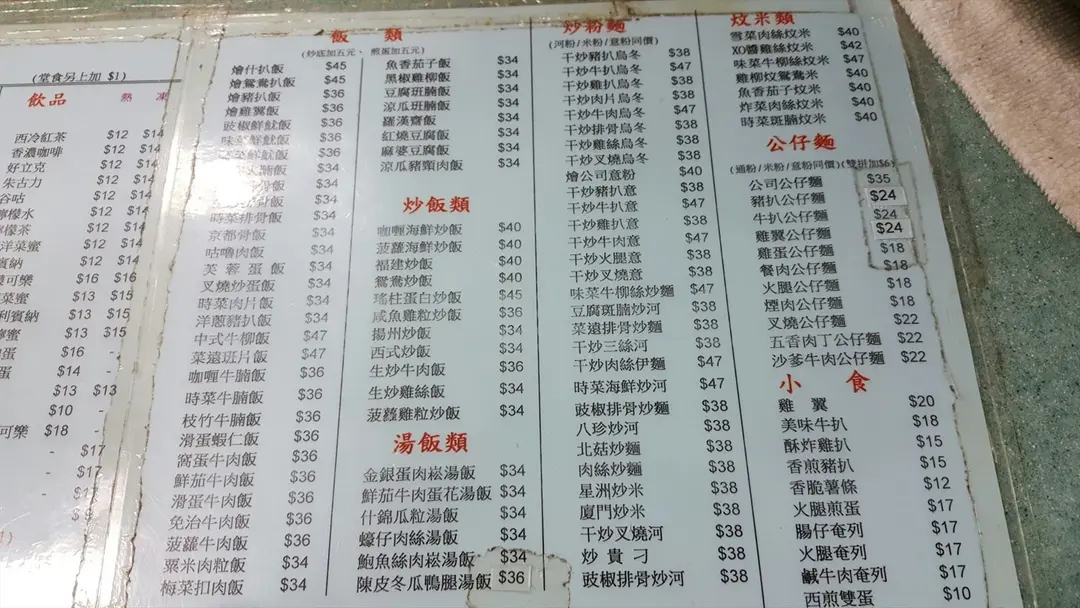 (堂食另上加 $1)
飲品 熱 凍
西冷紅茶 $12 $14
香濃咖啡 $12 $14
好立克 $12 $14
朱古力 $12 $14
谷咕 $12 $14
檸檬水 $12 $14
檸茶 $12 $14
洋菜蜜 $12 $14
賓納 $12 $14
可樂 $16 $16
菜蜜 $13 $15
利賓納 $13 $15
檸蜜 $13 $15
蛋 $16 -
蛋 $14 -
$13 $13
$10 -
可樂 $18 -
- $17
- $17
飯 類
(炒底加五元、煎蛋加五元)
燴什扒飯 $45
燴鴛鴦扒飯 $45
燴豬扒飯 $36
燴雞翼飯 $36
豉椒鮮魷飯 $36
味菜鮮魷飯 $36
菜鮮魷飯 $36
腩飯 $34
骨飯 $34
排骨飯 $34
時菜排骨飯 $34
京都骨飯 $34
咕嚕肉飯 $34
芙蓉蛋飯 $34
叉燒炒蛋飯 $34
時菜肉片飯 $34
洋蔥豬扒飯 $34
中式牛柳飯 $47
菜遠班片飯 $47
咖喱牛腩飯 $36
時菜牛腩飯 $36
枝竹牛腩飯 $36
滑蛋蝦仁飯 $36
窩蛋牛肉飯 $36
鮮茄牛肉飯 $36
滑蛋牛肉飯 $36
免治牛肉飯 $36
菠蘿牛肉飯 $36
粟米肉粒飯 $34
梅菜扣肉飯 $34
魚香茄子飯 $34
黑椒雞柳飯 $34
豆腐班腩飯 $34
涼瓜班腩飯 $34
羅漢齋飯 $34
紅燒豆腐飯 $34
麻婆豆腐飯 $34
涼瓜豬頸肉飯 $34
炒飯類
咖喱海鮮炒飯 $40
菠蘿海鮮炒飯 $40
福建炒飯 $40
鴛鴦炒飯 $40
瑤柱蛋白炒飯 $45
咸魚雞粒炒飯 $36
揚州炒飯 $34
西式炒飯 $34
生炒牛肉飯 $36
生炒雞絲飯 $34
菠蘿雞粒炒飯 $34
湯飯類
金銀蛋肉崧湯飯 $34
鮮茄牛肉蛋花湯飯 $34
什錦瓜粒湯飯 $34
蠔仔肉絲湯飯 $34
鮑魚絲肉崧湯飯 $34
陳皮冬瓜鴨腿湯飯 $36
炒粉麵
(河粉/米粉/意粉同價)
干炒豬扒烏冬 $38
干炒牛扒烏冬 $47
干炒雞扒烏冬 $38
干炒肉片烏冬 $38
干炒牛肉烏冬 $47
干炒排骨烏冬 $38
干炒雞絲烏冬 $38
干炒叉燒烏冬 $38
燴公司意粉 $40
干炒豬扒意 $38
干炒牛扒意 $47
干炒雞扒意 $38
干炒牛肉意 $47
干炒火腿意 $38
干炒叉燒意 $38
味菜牛柳絲炒麵 $47
豆腐斑腩炒河 $38
菜遠排骨炒麵 $38
干炒三絲河 $38
干炒肉絲伊麵 $47
時菜海鮮炒河 $47
豉椒排骨炒麵 $38
八珍炒河 $38
北菇炒麵 $38
肉絲炒麵 $38
星洲炒米 $38
廈門炒米 $38
干炒叉燒河 $38
炒貴刁 $38
豉椒排骨炒河 $38
炆米類
雪菜肉絲炆米 $40
XO醬雞絲炆米 $42
味菜牛柳絲炆米 $47
雞柳炆鴛鴦米 $40
魚香茄子炆米 $40
炸菜肉絲炆米 $40
時菜斑腩炆米 $40
公仔麵
(通粉/米粉/意粉同價)(雙拼加$6)
公司公仔麵 $35
豬扒公仔麵 $24
牛扒公仔麵 $24
雞翼公仔麵 $24
雞蛋公仔麵 $18
餐肉公仔麵 $18
火腿公仔麵 $18
煙肉公仔麵 $18
叉燒公仔麵 $22
五香肉丁公仔麵 $22
沙爹牛肉公仔麵 $22
小 食
雞 翼 $20
美味牛扒 $18
酥炸雞扒 $15
香煎豬扒 $15
香脆薯條 $12
火腿煎蛋 $17
腸仔奄列 $17
火腿奄列 $17
鹹牛肉奄列 $17
西煎雙蛋 $10